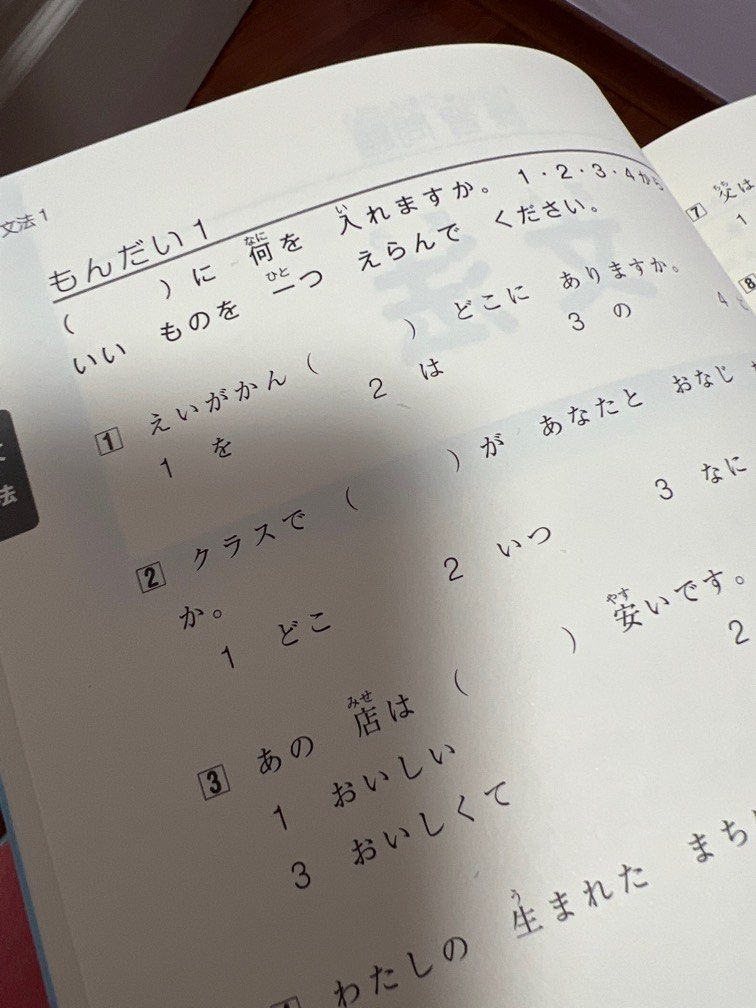 文法1
もんだい1
(　　)に 何(なに)を 入(い)れますか。 1・2・3・4から
いい ものを 一(ひと)つ えらんで ください。
1 えいがかん(　　) どこに ありますか。
1 を 2 は 3 の 4
2 クラスで (　　)が あなたと おなじ
か。
1 どこ 2 いつ 3 なに
3 あの 店(みせ)は (　　) 安(やす)いです。
1 おいしい 2
3 おいしくて
わたしの 生(う)まれた まち
法
7
1
8